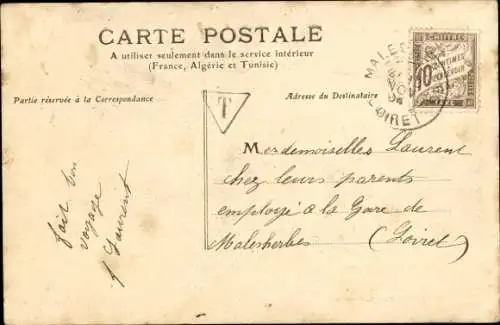 CARTE POSTALE
A utiliser seulement dans le service intérieur
(France, Algérie et Tunisie)
Partie réservée à la Correspondance
Adresse du Destinataire
T
CHIFFRE
10
CENTIMES
A PERCEVOIR
TAXE
LOIRET
fait bon
voyage
Laurent
Merdemoiselles Laurent
chez leurs parents
employé à la Gare de
Malesherbes (Loiret)